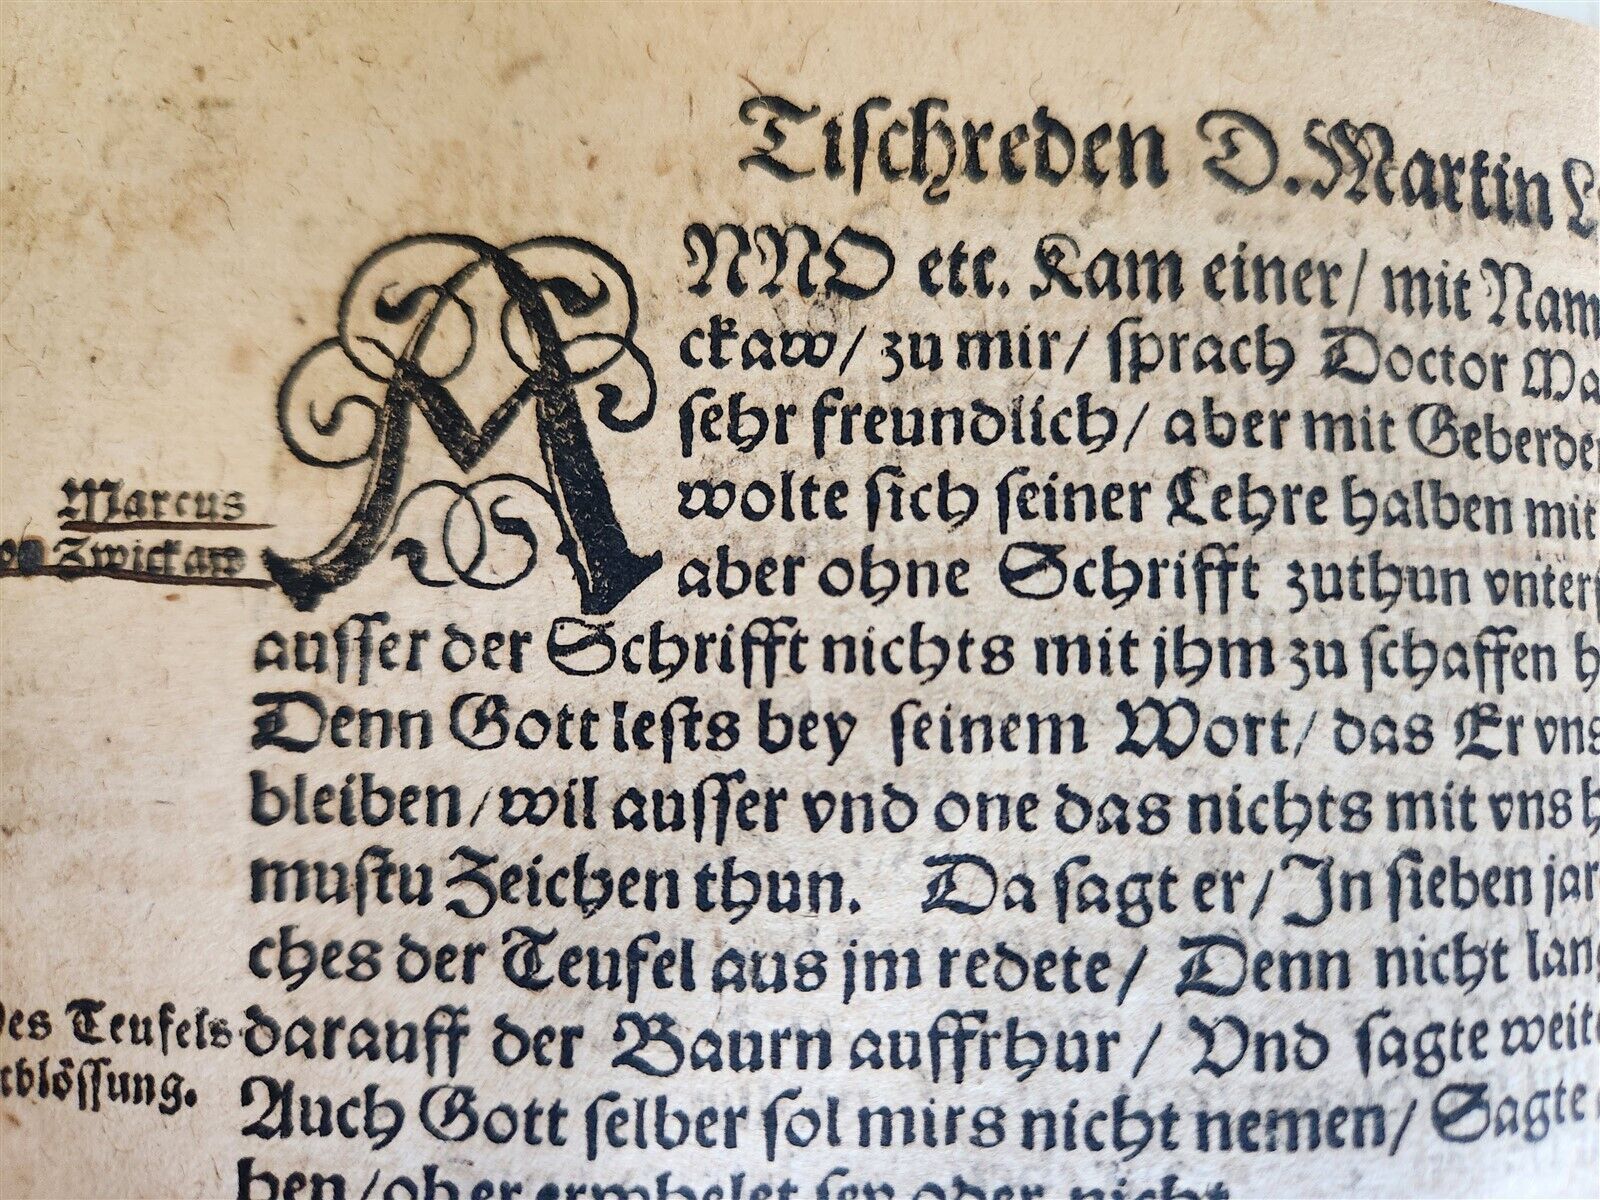 Tiſchreden D. Martin
ANNO etc. Kam einer/ mit Nam
ckaw/ zu mir/ ſprach Doctor Ma
ſehr freundlich/ aber mit Geberden
Marcus
wolte ſich ſeiner Lehre halben mit
Zwickaw
aber ohne Schrifft zuthun vnter
auſſer der Schrifft nichts mit jhm zu ſchaffen h
Denn Gott leſts bey ſeinem Wort/ das Er vns
bleiben/ wil auſſer vnd one das nichts mit vns h
muſtu Zeichen thun. Da ſagt er/ In ſieben jar
ches der Teufel aus jm redete/ Denn nicht lang
Des Teufels
darauff der Baurn auffrhur/ Vnd ſagte weite
ſchlöſſung.
Auch Gott ſelber ſol mirs nicht nemen/ Sagte
ben/ ob er erwhelet ſey oder nicht.